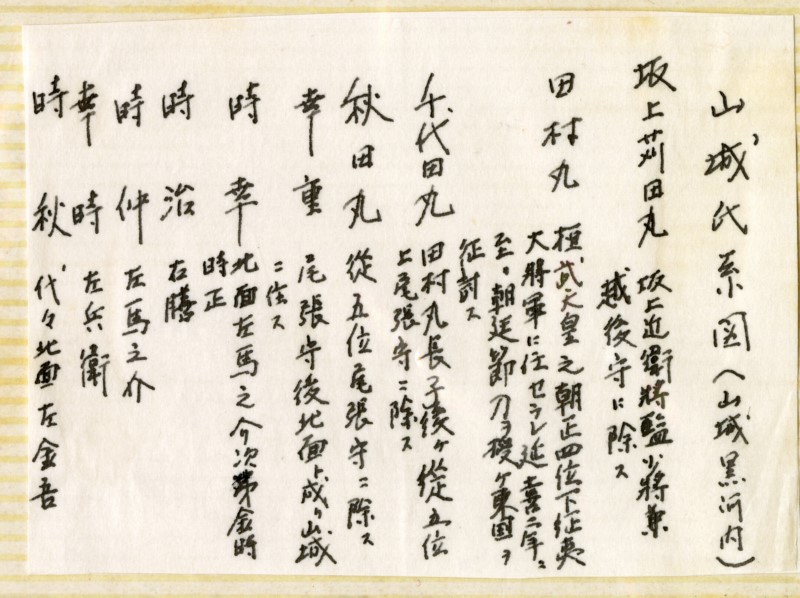 山城氏系図(山城黒河内)
坂上苅田丸 坂上近衛将監少将兼
越後守に除ス
田村丸 桓武天皇之朝正四位下征夷
大将軍に任セラレ延喜二年ニ
至リ朝廷節刀ヲ授ケ東国ヲ
征討ス
千代田丸 田村丸長子後ケ従五位
上尾張守ニ除ス
秋田丸 従五位尾張守ニ除ス
幸重 尾張守後北面ト成リ山城
ニ住ス
時幸 北面左馬之介次第金時
時正
時治 右膳
時仲 左馬之介
幸時 左兵衛
時秋 代々北面左金吾